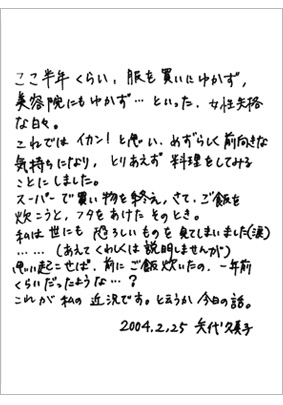 ここ半年くらい、服も買いにゆかず、
美容院にもゆかず…といった、女性失格
な日々。
これではイカン!と思い、めずらしく前向きな
気持ちになり、とりあえず料理をしてみる
ことにしました。
スーパーで買い物を終え、さて、ご飯を
炊こうと、フタをあけたそのとき。
私は世にも恐ろしいものを見てしまいました(涙)
……(あえてくわしくは説明しませんが)
思い起こせば、前にご飯炊いたの、一年前
くらいだったような…?
これが私の近況です。と言うか今日の話。
2004.2.25 矢代久美子